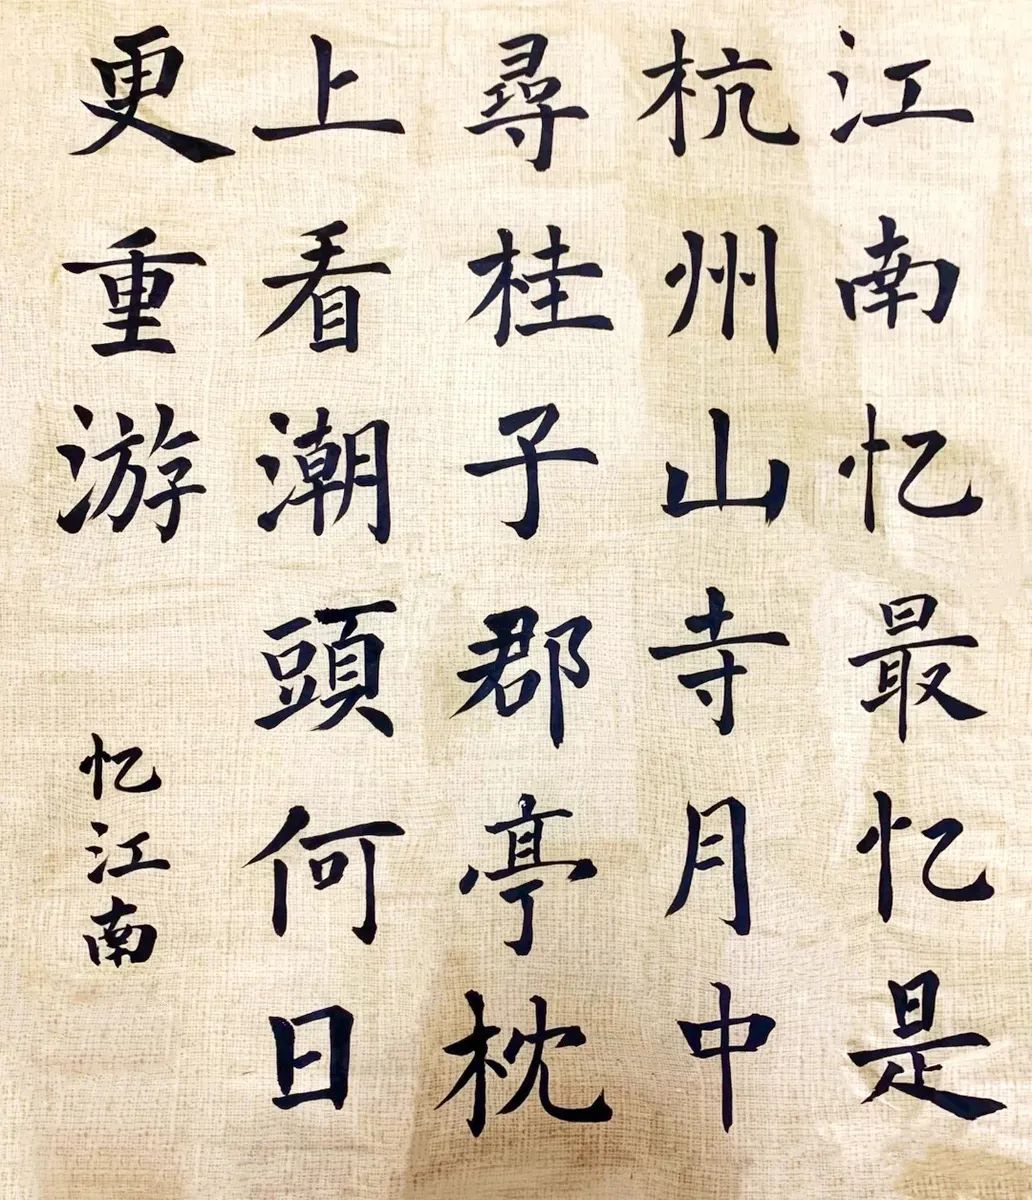 江南忆最忆是
杭州山寺月中
尋桂子郡亭枕
上看潮頭何日
更重游
忆江南